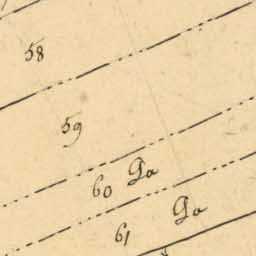 58
59
60 Do
61 Do